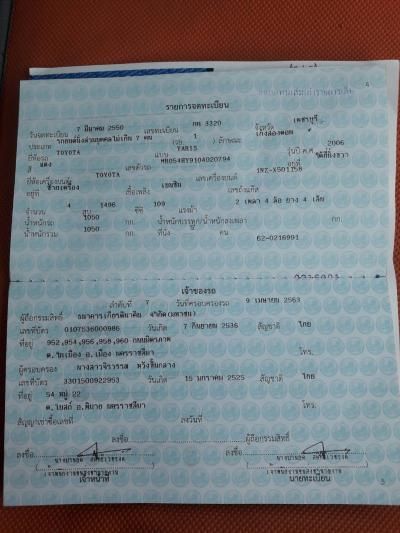 4
รายการจดทะเบียน
วันจดทะเบียน 7 มีนาคม 2550 เลขทะเบียน กต 3320 จังหวัด เพชรบุรี
ประเภท รถยนต์นั่งส่วนบุคคลไม่เกิน 7 คน (รย. 1 ) ลักษณะ เก๋งสองตอน
ยี่ห้อรถ TOYOTA แบบ YARIS รุ่นปี ค.ศ. 2006
สี แดง เลขตัวรถ MR054HY9104020794 อยู่ที่
ยี่ห้อเครื่องยนต์ TOYOTA เลขเครื่องยนต์ 1NZ-X501158
อยู่ที่ ซ้ายเครื่อง เชื้อเพลิง เบนซิน เลขถังแก๊ส
จำนวน 4 สูบ 1496 ซีซี 109 แรงม้า 2 เพลา 4 ล้อ ยาง 4 เส้น
น้ำหนักรถ 1050 กก. น้ำหนักบรรทุก/น้ำหนักลงเพลา กก.
น้ำหนักรวม 1050 กก. ที่นั่ง คน 62-0216991
เจ้าของรถ
ลำดับที่ 7 วันที่ครอบครองรถ 9 เมษายน 2563
ผู้ถือกรรมสิทธิ์ ธนาคารเกียรตินาคิน จำกัด(มหาชน)
เลขที่บัตร 0107536000986 วันเกิด 7 กันยายน 2536 สัญชาติ ไทย
ที่อยู่ 952,954,956,958,960 ถนนมิตรภาพ
ต.ในเมือง อ.เมือง นครราชสีมา โทร.
ผู้ครอบครอง นางสาวจิรวรรส หวังชิ้นกลาง
เลขที่บัตร 3301500922953 วันเกิด 15 มกราคม 2525 สัญชาติ ไทย
ที่อยู่ 54 หมู่ 22
ต.โบสถ์ อ.พิมาย นครราชสีมา โทร.
สัญญาเช่าซื้อเลขที่ ลงวันที่
ลงชื่อ ผู้ถือกรรมสิทธิ์
ลงชื่อ ลงชื่อ
เจ้าหน้าที่ นายทะเบียน
5